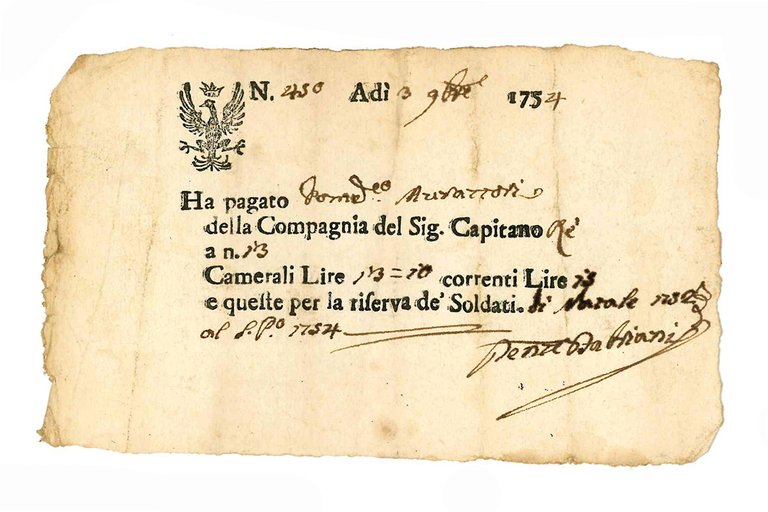 N. 450 Adì 3 9bre 1754
Ha pagato Dom.co Murattori
della Compagnia del Sig. Capitano Rè
a n. 13
Camerali Lire 13=10 correnti Lire 15
e queste per la riserva de' Soldati. di Natale
al S. P.o 1754